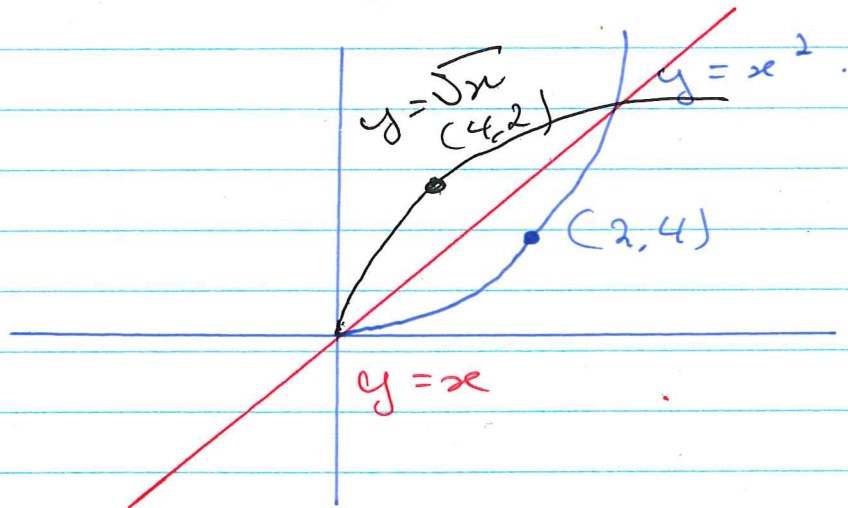 y = x² .
y = √x
(4,2)
(2,4)
y = x